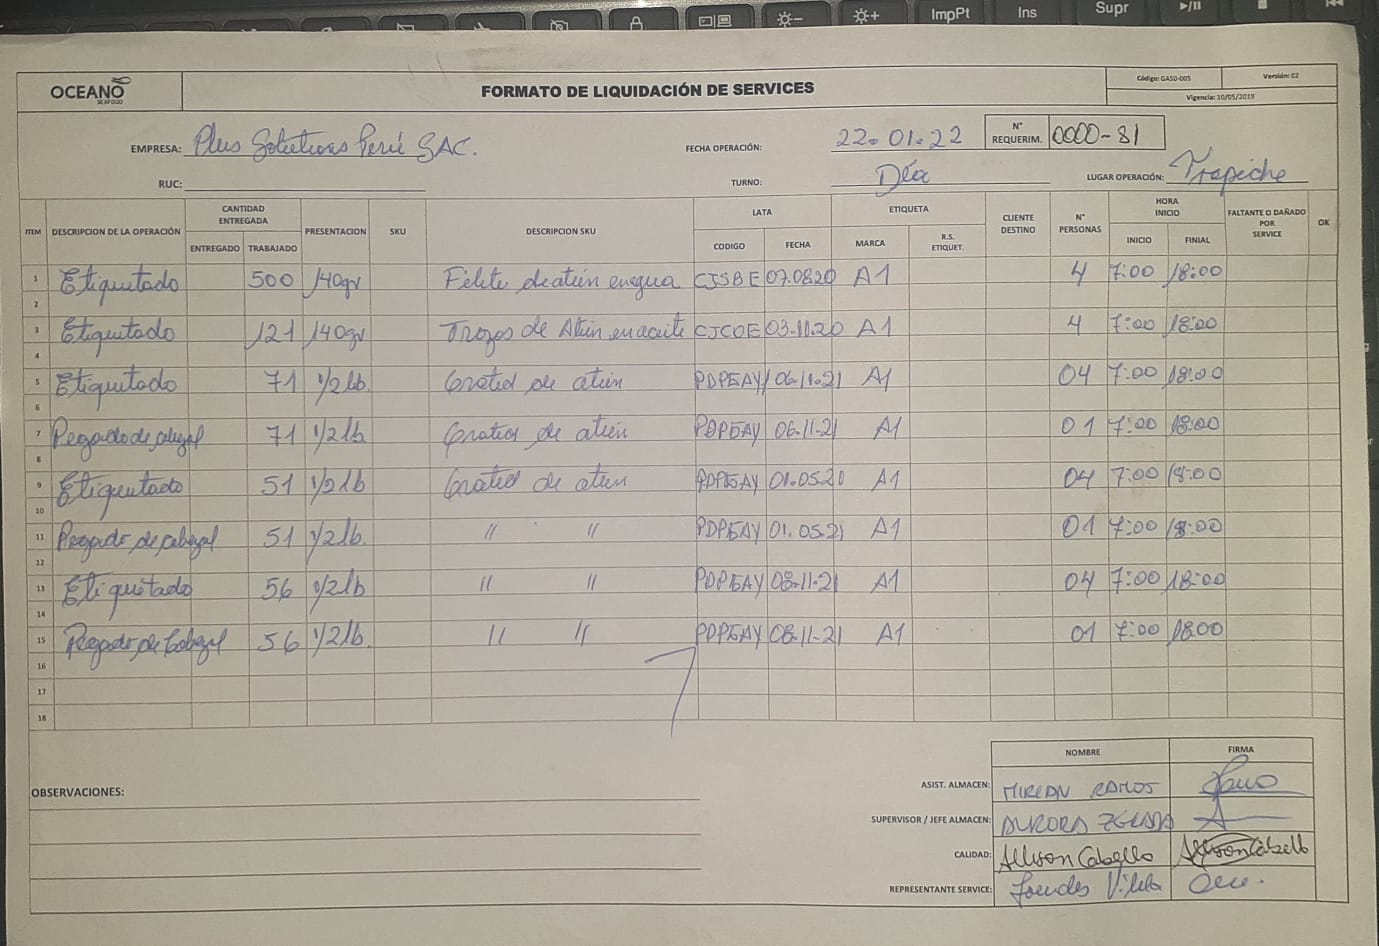 ImpPt Ins Supr
OCEANO
SEAFOOD
FORMATO DE LIQUIDACIÓN DE SERVICES
Código: GASO-005 Versión: 02
Vigencia: 10/05/2019
EMPRESA: Plus Solutions Perú SAC.
FECHA OPERACIÓN: 22-01-22
N° REQUERIM. 0000-81
RUC:
TURNO: Día
LUGAR OPERACIÓN: Trapiche
ITEM DESCRIPCION DE LA OPERACIÓN CANTIDAD ENTREGADA PRESENTACION SKU DESCRIPCION SKU LATA ETIQUETA CLIENTE DESTINO N° PERSONAS HORA INICIO FALTANTE O DAÑADO POR SERVICE OK
ENTREGADO TRABAJADO CODIGO FECHA MARCA R.S. ETIQUET. INICIO FINIAL
1 Etiquetado 500 140gr Filete de atún en agua CJSBE 07.08.20 A1 4 7:00 18:00
2
3 Etiquetado 121 140gr Trozos de Atún en aceite CJCOE 03-11.20 A1 4 7:00 18:00
4
5 Etiquetado 71 1/2 lb Grated de atún PDPEAY 06-11.21 A1 04 7:00 18:00
6
7 Pegado de cabezal 71 1/2 lb Grated de atún PDPEAY 06-11-21 A1 01 7:00 18:00
8
9 Etiquetado 51 1/2 lb Grated de atún PDPEAY 01.05.20 A1 04 7:00 18:00
10
11 Pegado de cabezal 51 1/2 lb. " " PDPEAY 01.05.21 A1 01 7:00 18:00
12
13 Etiquetado 56 1/2 lb " " PDPEAY 08-11-21 A1 04 7:00 18:00
14
15 Pegado de Cabezal 56 1/2 lb. " " PDPEAY 08-11-21 A1 01 7:00 18:00
16
17
18
NOMBRE FIRMA
OBSERVACIONES:
ASIST. ALMACEN: MIRIAN RAMOS
SUPERVISOR / JEFE ALMACEN: AURORA
CALIDAD: Allison Cabello Allison Cabello
REPRESENTANTE SERVICE: Lourdes Vilela